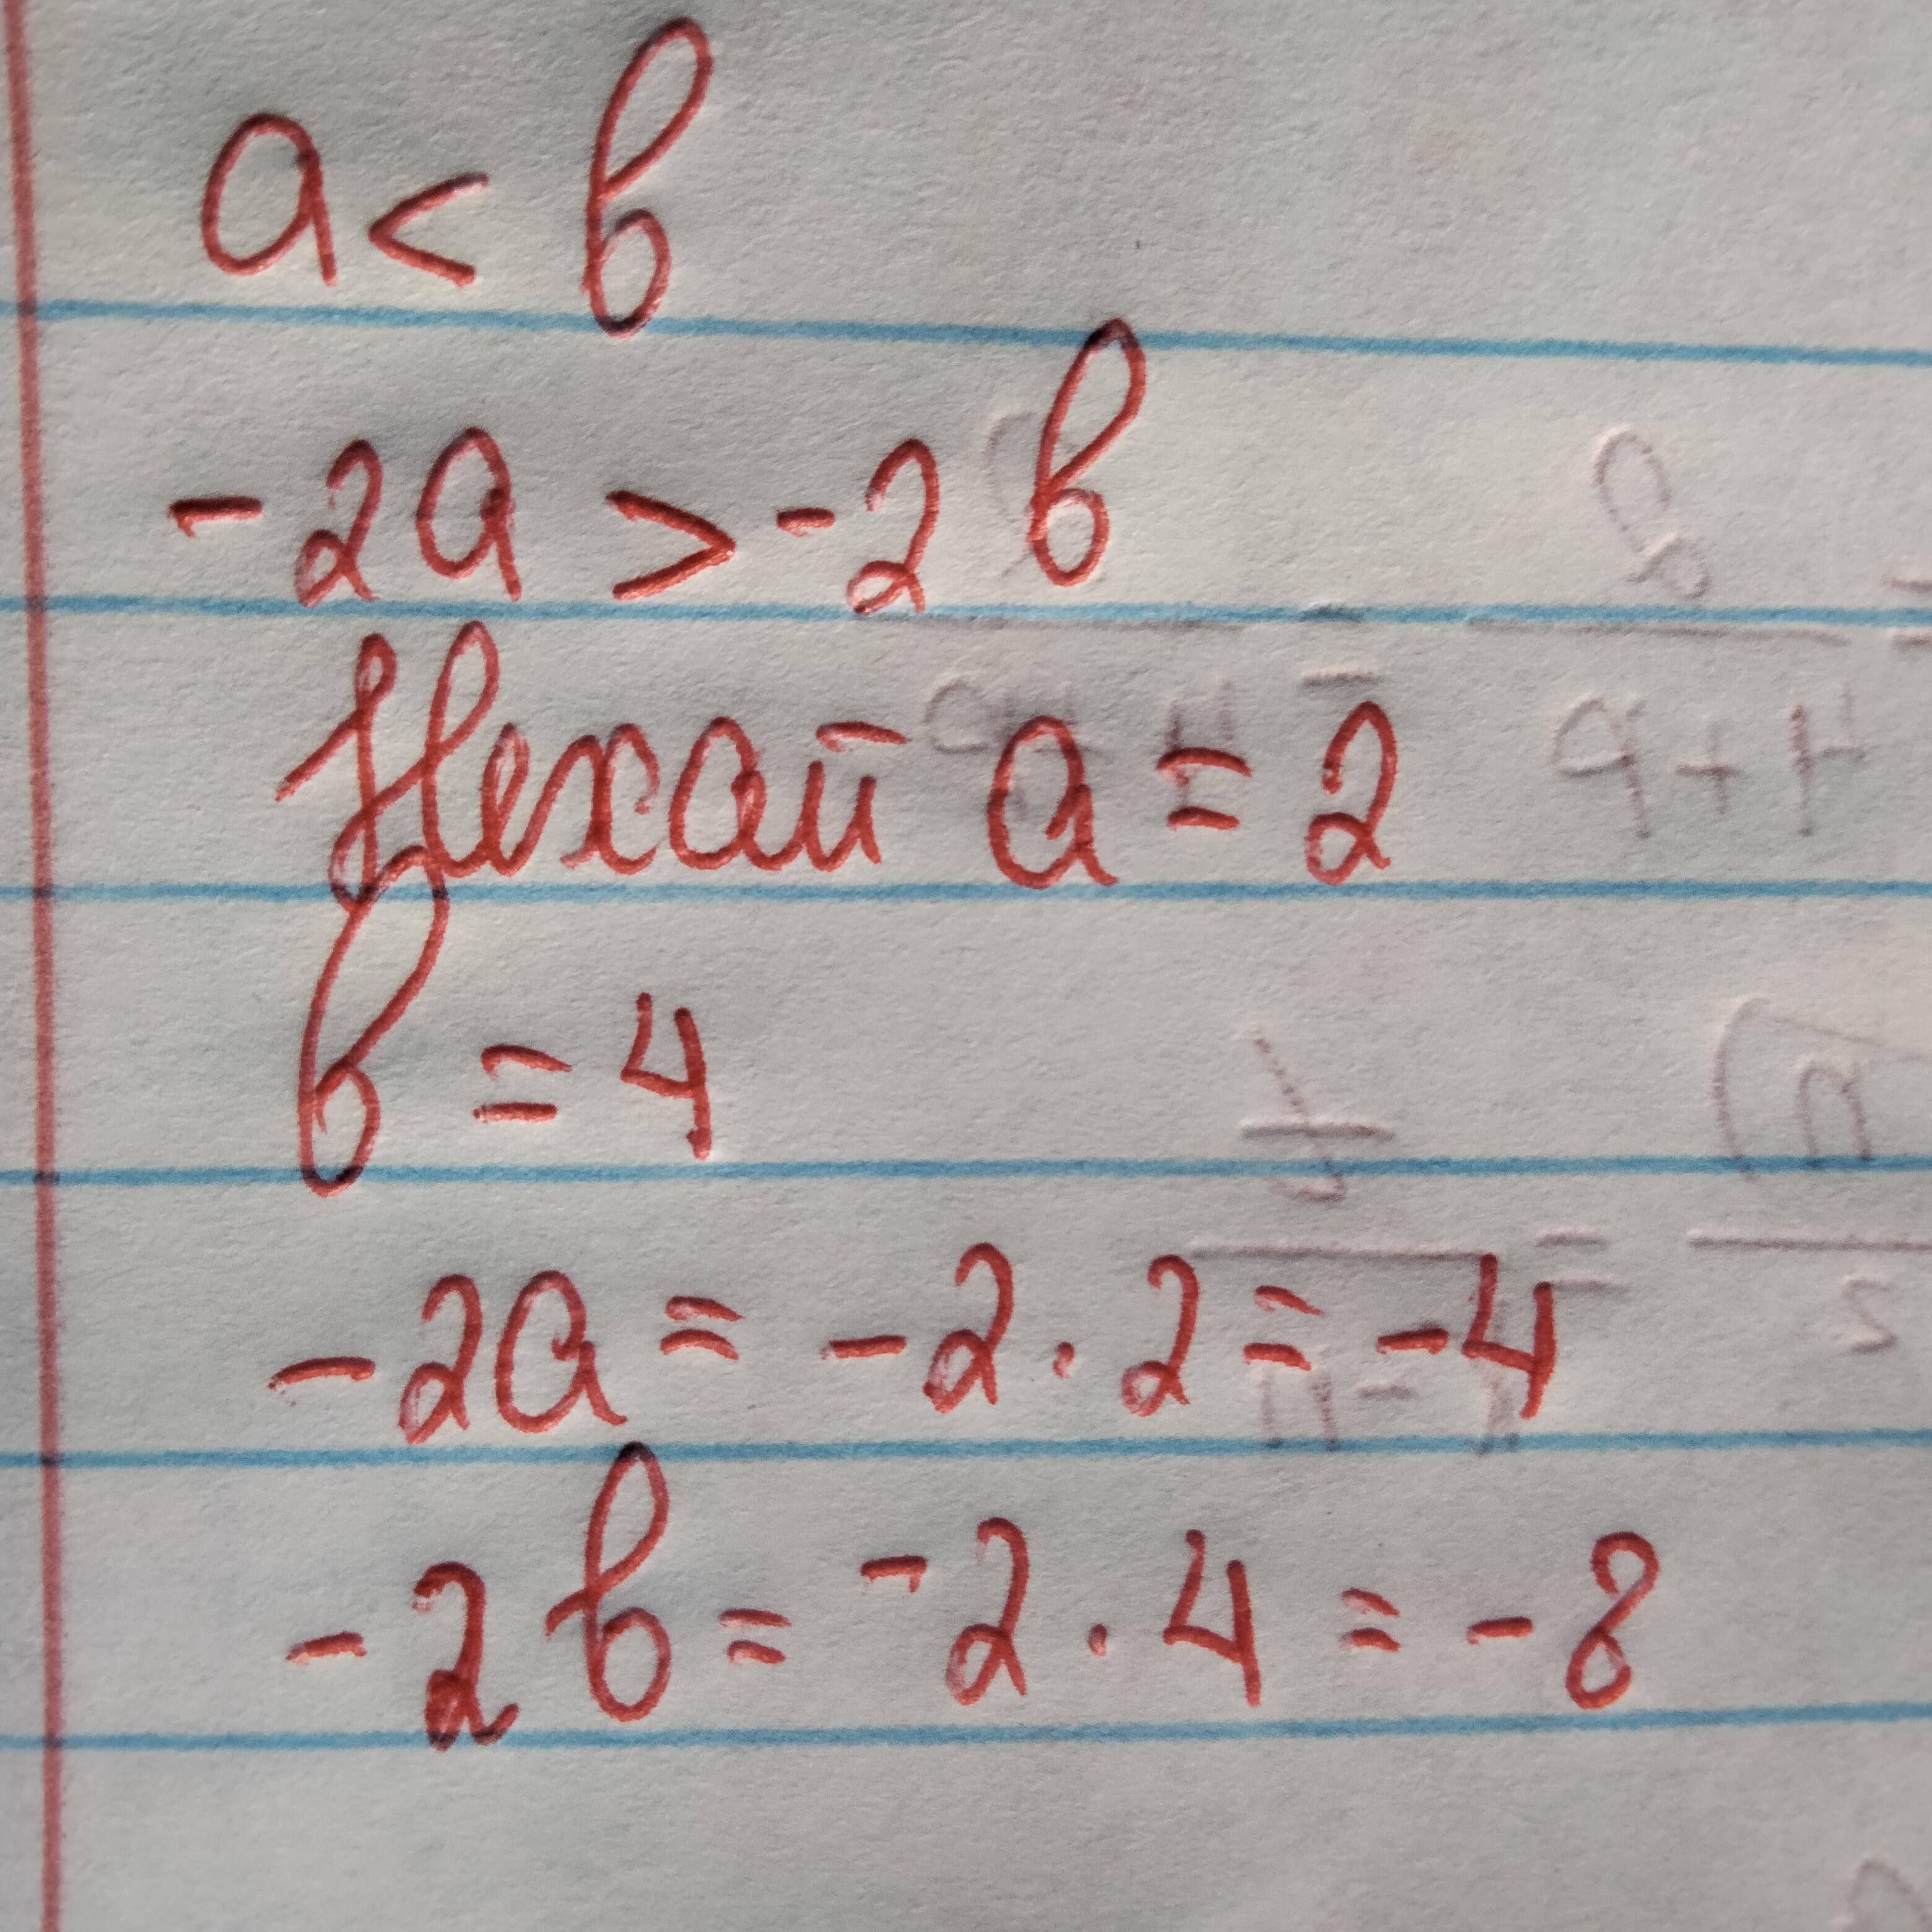 a < b
-2a > -2b
Нехай a = 2
b = 4
-2a = -2 · 2 = -4
-2b = -2 · 4 = -8